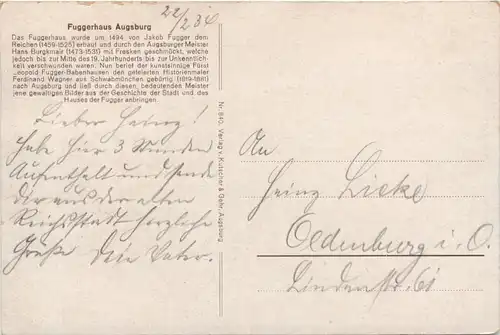 Fuggerhaus Augsburg
Das Fuggerhaus wurde um 1494 von Jakob Fugger dem
Reichen (1459-1525) erbaut und durch den Augsburger Meister
Hans Burgkmair (1473-1531) mit Fresken geschmückt, welche
jedoch bis zur Mitte des 19. Jahrhunderts bis zur Unkenntlich-
keit verschwunden waren. Nun berief der kunstsinnige Fürst
Leopold Fugger-Babenhausen den gefeierten Historienmaler
Ferdinand Wagner aus Schwabmünchen gebürtig (1819-1881)
nach Augsburg und ließ durch diesen, bedeutenden Meister
jene gewaltigen Bilder aus der Geschichte der Stadt und des
Hauses der Fugger anbringen.
22/2 34
Lieber Heinz!
Habe hier 3 Stunden
Aufenthalt und sende
Dir aus der alten
Reichsstadt herzliche
Grüße Dein Vater.
Nr. 840, Verlag v. Kutscher & Gehr, Augsburg
An
Heinz Licke
Oldenburg i. O.
Lindenstr. 61